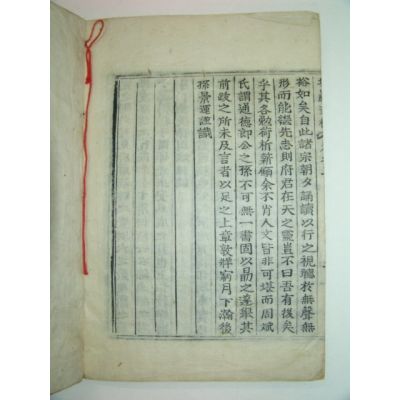 裕如矣自此諸宗朝夕誦讀以行之視聽於無聲無
形而能繼先志則府君在天之靈豈不曰吾有後矣
乎其各勉㫋析薪顧余不肖人文皆非可堪而周斌
氏謂通德郎公之孫不可無一書固以勗之遂綴其
前跋之所未及言者以足之上章敦牂窮月下澣後
孫景運謹識